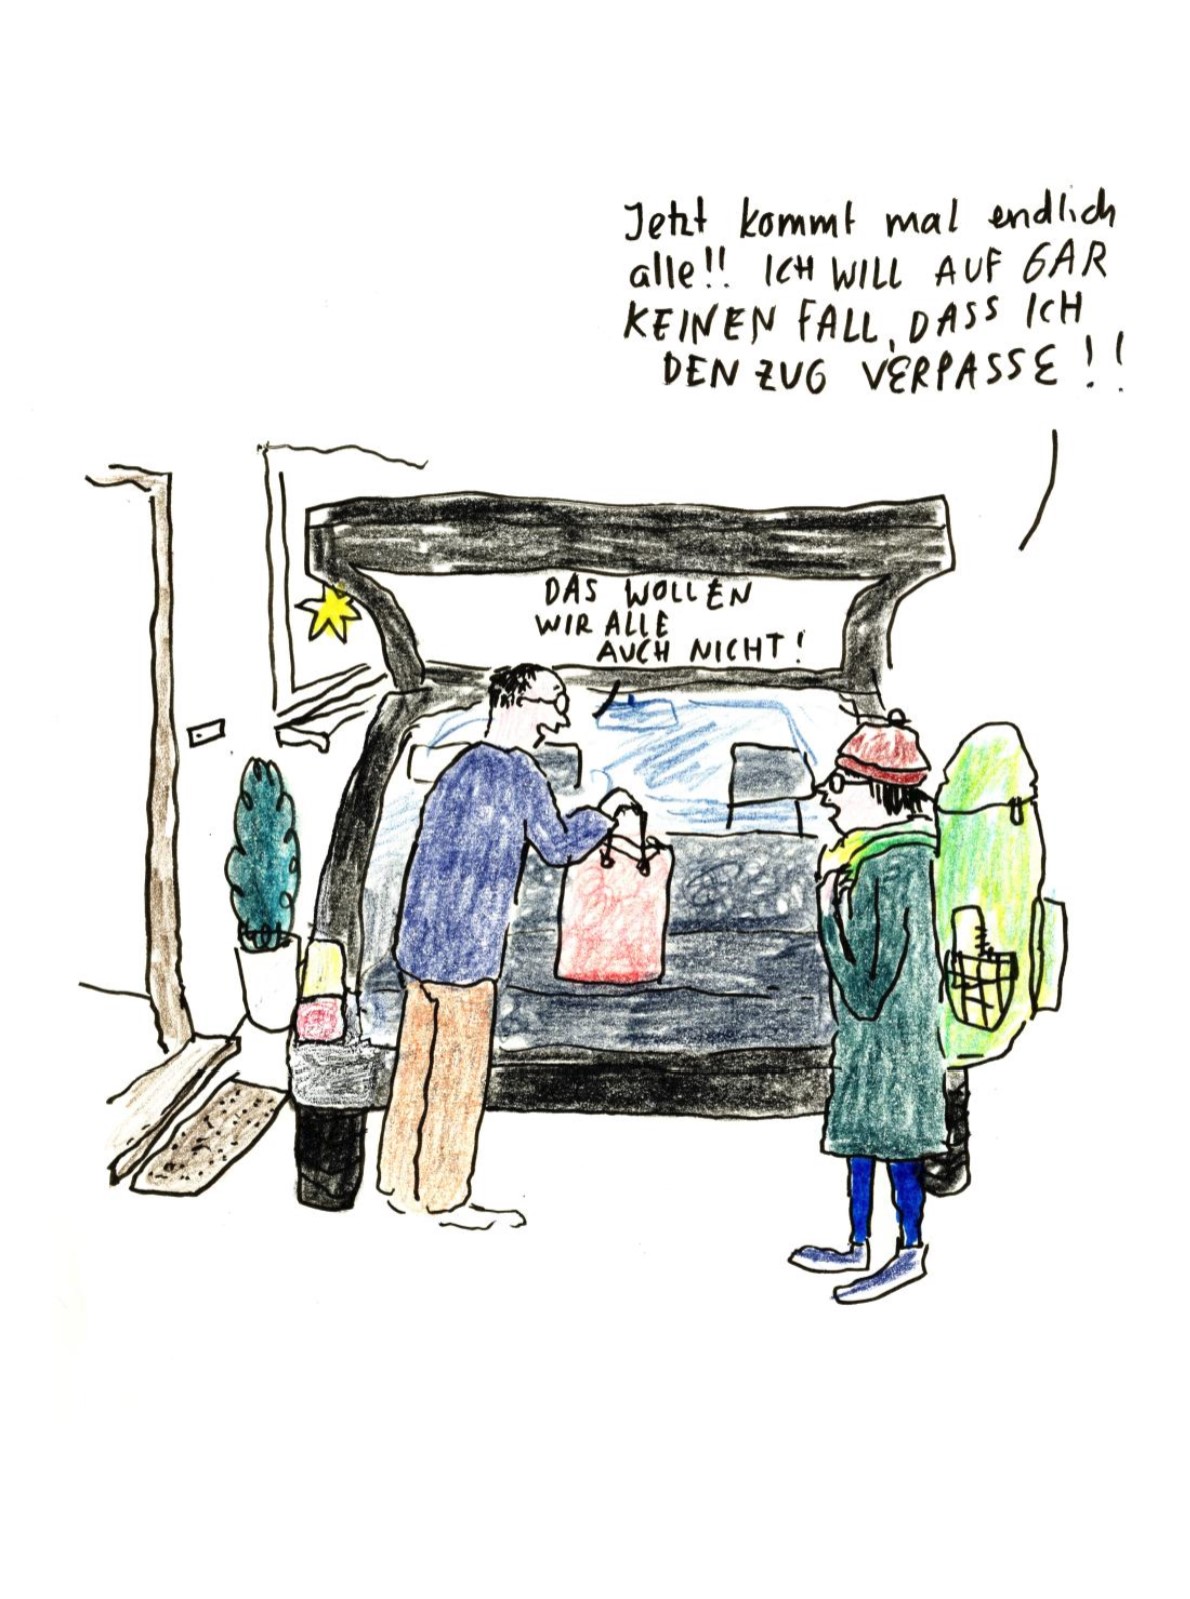 Jetzt kommt mal endlich
alle!! ICH WILL AUF GAR
KEINEN FALL, DASS ICH
DEN ZUG VERPASSE!!
DAS WOLLEN
WIR ALLE
AUCH NICHT!